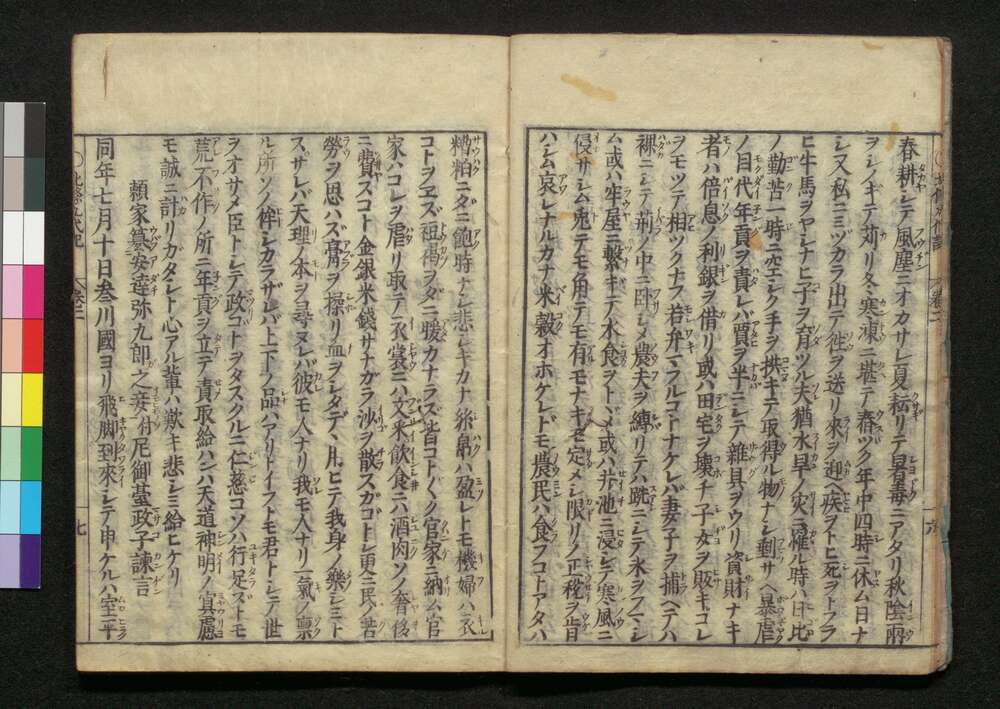 春耕シテ風塵ニオカサレ夏耘リテ暑毒ニアタリ秋陰雨
ヲシノギテ苅リタ寒凍ニ堪テ舂ツク年中四時ニ休ム日ナ
シ又私ニミヅカラ出テ徃ヲ送リ來ヲ迎ヘ疾ヲトヒ死ヲトフラ
ヒ牛馬ヲヤシナヒ子ヲ育ツル夫猶水旱ノ灾ニ罹ル時ハ日比
ノ勤苦一時ニ空シク手ヲ拱キテ取得ル物ナシ剰サヘ暴虐
ノ目代年貢ヲ責レバ賈ヲ半ニシテ雑具ヲウリ資財ナキ
者ハ倍息ノ利銀ヲ借リ或ハ田宅ヲ壊チ子女ヲ販キコレ
ヲモツテ相ツクナフ若弁マフルコトナケレバ妻子ヲ捕ヘテハ
裸ニシテ荊ノ中ニ臥シメ農夫ヲ縛リテハ跣ニシテ氷ヲフマシ
ム或ハ牢屋ニ繋キテ水食ヲトヽメ或ハ井池ニ浸シテ寒風ニ
侵サシム兎テモ角テモ有モナキセ定メシ限リノ正税ヲ責
ハシム哀レナルカナ米穀オホケレドモ農民ハ食フコトアタハ
糟粕ニダニ飽時ナシ悲シキカナ絲帛ハ盈レトモ機婦ハ衣
コトヲヱズ祖褐ヲダニ暖カナラズ皆コト〴〵ク官家ニ納ム官
家ハコレヲ虐リ取テ衣裳ニハ文采飲食ニハ酒肉ソノ奢侈
ニ費スコト金銀米錢サナガラ沙ヲ散スガゴトシ更ニ民ノ苦
勞ヲ思ハズ膏ヲ操リ血ヲシタデヽ用ヒテ我身ノ樂シミト
スサレバ天理ノ本ヲ尋ヌレバ彼モ人ナリ我モ人ナリ一氣ノ禀
ル所ソノ侔シカラザレバ上下ノ品ハアリトイヘトモ君トシテ世
ヲオサメ臣トシテ政コトヲタスクルニ仁慈コソハ行足ズトモ
荒不作ノ所ニ年貢ヲ立テ責取給ハンハ天道神明ノ冥慮
モ誠ニ計リガタシト心アル輩ハ歎キ悲シミ給ヒケリ
頼家纂安達弥九郎之妾付尼御臺政子諫言
同年七月十日叁川國ヨリ飛脚到來シテ申ケルハ室平